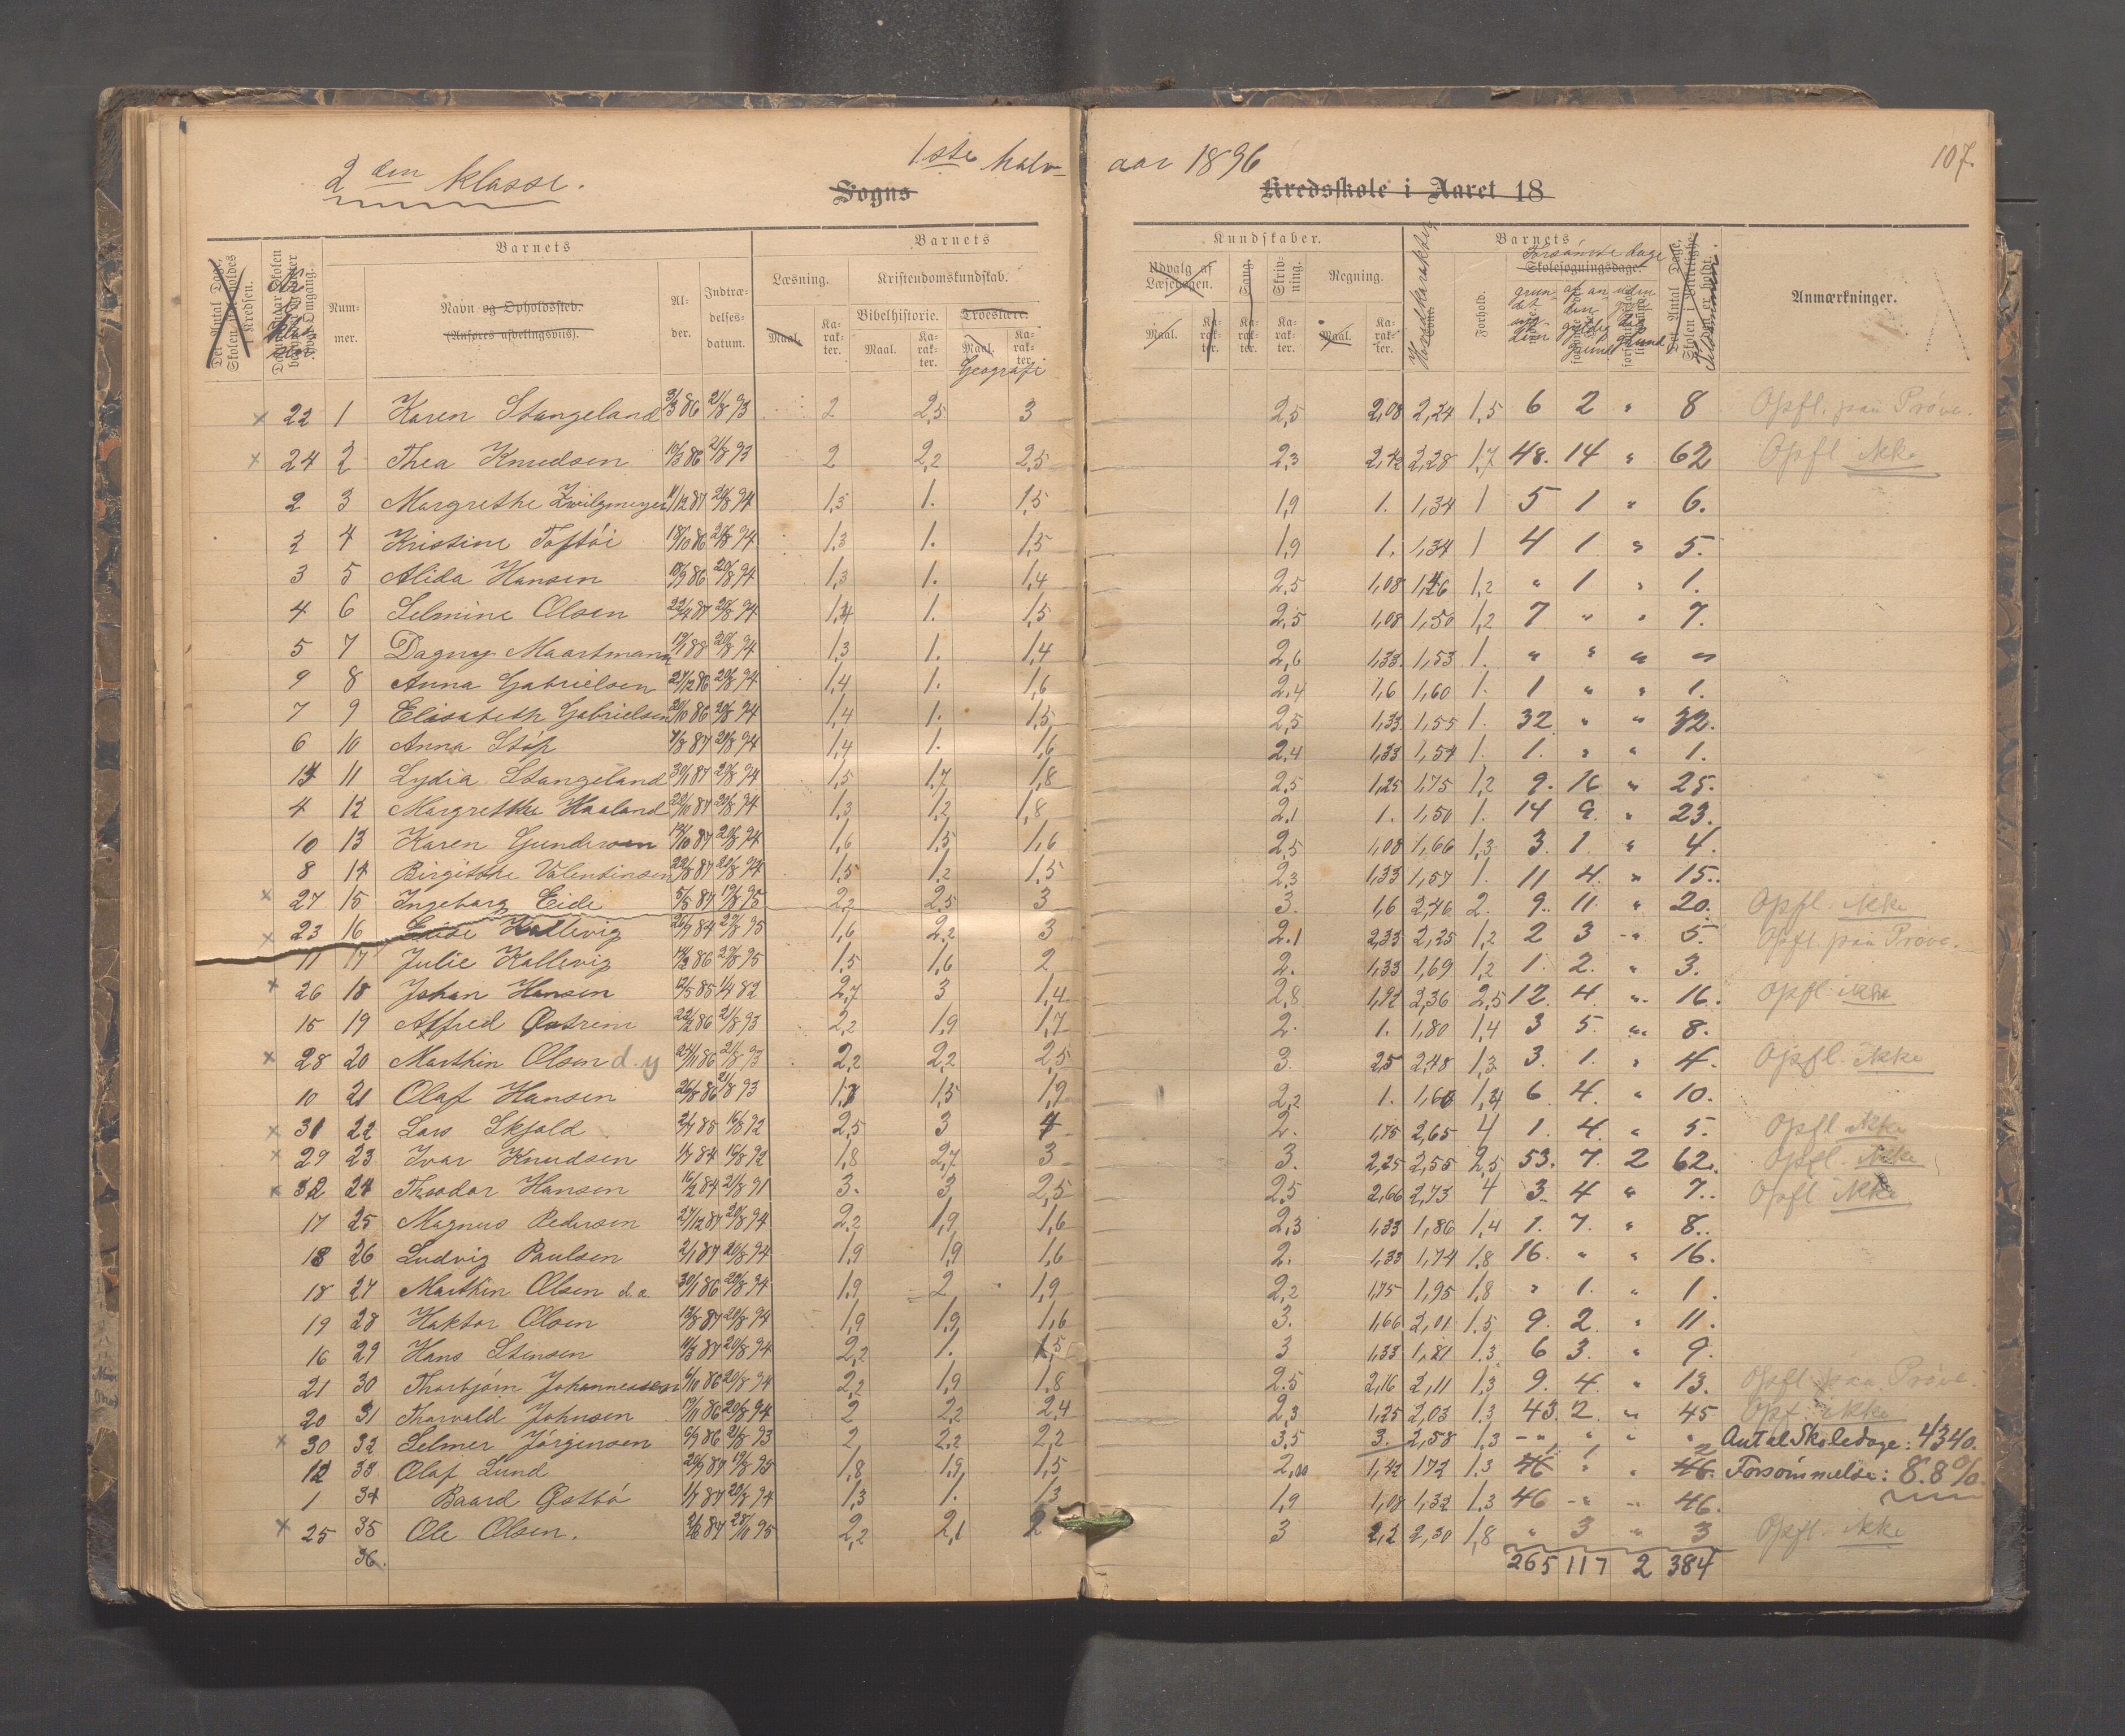 2den klasse. 1ste halv- aar 1896 107.
Sogns Kredsskole i Aaret 18
Barnets Barnets Kundskaber. Barnets
Nummer. Navn og Opholdssted. (Anføres afdelingsvis). Alder. Indtrædelsesdatum. Læsning. Kristendomskundskab. Udvalg af Læsebogen. Sang. Skrivning. Regning. Hovedkarakter Forhold. Forsømte dage Skolesøgningsdage. Anmærkninger.
Bibelhistorie. Troeslære.
Maal. Karakter. Maal. Karakter. Maal. Karakter. Maal. Karakter. Karakter. Karakter. Maal. Karakter.
Geografi
x 22 1 Karen Stangeland 3/3 86 21/8 93 2 2,5 3 2,5 2,08 2,24 1,5 6 2 " 8 Opfl. paa Prøve.
x 24 2 Thea Knudsen 10/3 86 21/8 93 2 2,2 2,5 2,3 2,42 2,28 1,7 48. 14 " 62 Opfl ikke
2 3 Margrethe Zwilgmeyer 11/12 87 20/8 94 1,3 1. 1,5 1,9 1. 1,34 1 5 1 " 6.
2 4 Kristine Toftøi 18/10 86 20/8 94 1,3 1. 1,5 1,9 1. 1,34 1 4 1 " 5.
3 5 Alida Hansen 18/9 86 20/8 94 1,3 1. 1,4 2,5 1,08 1,46 1,2 " 1 " 1.
4 6 Selmine Olsen 22/4 87 20/8 94 1,4 1. 1,5 2,5 1,08 1,50 1,2 7 " " 7.
5 7 Dagny Maartmann 19/1 88 20/8 94 1,3 1. 1,4 2,6 1,33 1,53 1. " " " "
9 8 Anna Gabrielsen 27/12 86 20/8 94 1,4 1. 1,6 2,4 1,6 1,60 1. 1 " " 1.
7 9 Elisabeth Gabrielsen 20/10 86 20/8 94 1,4 1. 1,5 2,5 1,33 1,55 1. 32 " " 32.
6 10 Anna Støp 7/8 87 20/8 94 1,4 1. 1,6 2,4 1,33 1,54 1. 1. " " 1.
14 11 Lydia Stangeland 30/1 87 20/8 94 1,5 1,7 1,8 2,5 1,25 1,75 1,2 9. 16 " 25.
4 12 Margrethe Haaland 22/10 87 20/8 94 1,3 1,2 1,8 2,1 1. 1,50 1. 14 9. " 23.
10 13 Karen Gundersen 14/10 87 20/8 94 1,6 1,5 1,6 2,5 1,08 1,66 1,3 3. 1. " 4.
8 14 Birgitthe Valentinsen 22/8 87 20/8 94 1,5 1,2 1,5 2,3 1,33 1,57 1. 11 4. " 15.
x 27 15 Ingeborg Eide 5/5 87 19/8 95 2,2 2,5 3 3. 1,6 2,46 2. 9. 11. " 20. Opfl. ikke
x 23 16 Kallevig 26/1 84 27/8 95 1,6 2,2 3 2.1 2,33 2,25 1,2 2 3 " 5. Opfl. paa Prøve.
11 17 Julie Kallevig 14/2 86 27/8 95 1,5 1,6 2 2. 1,33 1,69 1,2 1. 2. " 3.
x 26 18 Johan Hansen 12/5 85 1/4 82 2,7 3 1,4 2,8 1,92 2,36 2,5 12. 4. " 16. Opfl ikke
15 19 Alfred Østrem 22/2 86 21/8 93 2,2 1,9 1,7 2. 1. 1,80 1,4 3 5. " 8.
x 28 20 Marthin Olsen d.y 24/11 86 21/8 93 2,2 2,2 2,5 3. 2,5 2,48 1,3 3. 1. " 4. Opfl. ikke
10 21 Olaf Hansen 26/8 86 21/8 93 1,7 1,5 1,9 2,2 1. 1,66 1,4 6 4. " 10.
x 31 22 Lars Skjold 2/4 85 16/8 92 2,5 3 4 2. 1,75 2,65 4 1. 4. " 5. Opfl ikke
x 29 23 Ivar Knudsen 1/7 84 15/8 92 1,8 2,7 3 3. 2,25 2,55 2,5 53. 7. 2 62. Opfl. ikke
x 32 24 Theodor Hansen 16/2 84 21/8 91 3. 3 2,5 2,5 2,66 2,73 4 3. 4 " 7. Opfl ikke
17 25 Magnus Pedersen 27/12 87 20/8 94 2,2 1,9 1,6 2,3 1,33 1,86 1,4 1. 7. " 8.
13 26 Ludvig Paulsen 2/1 87 20/8 94 1,9 1,9 1,6 2. 1,33 1,74 1,8 16. " " 16.
18 27 Marthin Olsen d.æ. 30/1 86 20/8 94 1,9 2 1,9 2,2 1,75 1,95 1,8 " 1. " 1.
19 28 Haktor Olsen 13/8 87 20/8 94 1,9 1,9 1,6 3. 1,66 2,01 1.5 9. 2. " 11.
16 29 Hans Stensen 11/3 87 20/8 94 2,2 1. 1,5 3 1,33 1,81 1.3 6 3. " 9.
21 30 Thorbjørn Johannessen 6/10 86 20/8 94 2,2 1,9 1,8 2.5 2,16 2,11 1,3 9. 4. " 13. Opfl. paa Prøve.
20 31 Thorvald Johnsen 19/11 86 20/8 94 2 2,2 2,4 2,3 1,25 2,03 1.3 43. 2. " 45 Opf. ikke
x 30 32 Selmer Jørgensen 6/9 86 21/8 93 2 2,2 2,2 3,5 3. 2,58 1,3 " " " " Antal Skoledage: 4340.
12 33 Olaf Lund 20/9 87 19/8 95 1,8 1,9 1,5 2,00 1,42 172 1.3 46 1 " 46. 2 Forsømmelse: 8.8%
1 34 Baard Østbø 1/7 87 20/8 94 1,3 1. 1,3 1,9 1,08 1,32 1.3 46 " " 46.
x 25 35 Ole Olsen. 2/8 87 28/10 95 2,2 2,1 2 3 2,2 2,30 1,8 " 3 " 3 Opfl. ikke
36. 265 117 2 384